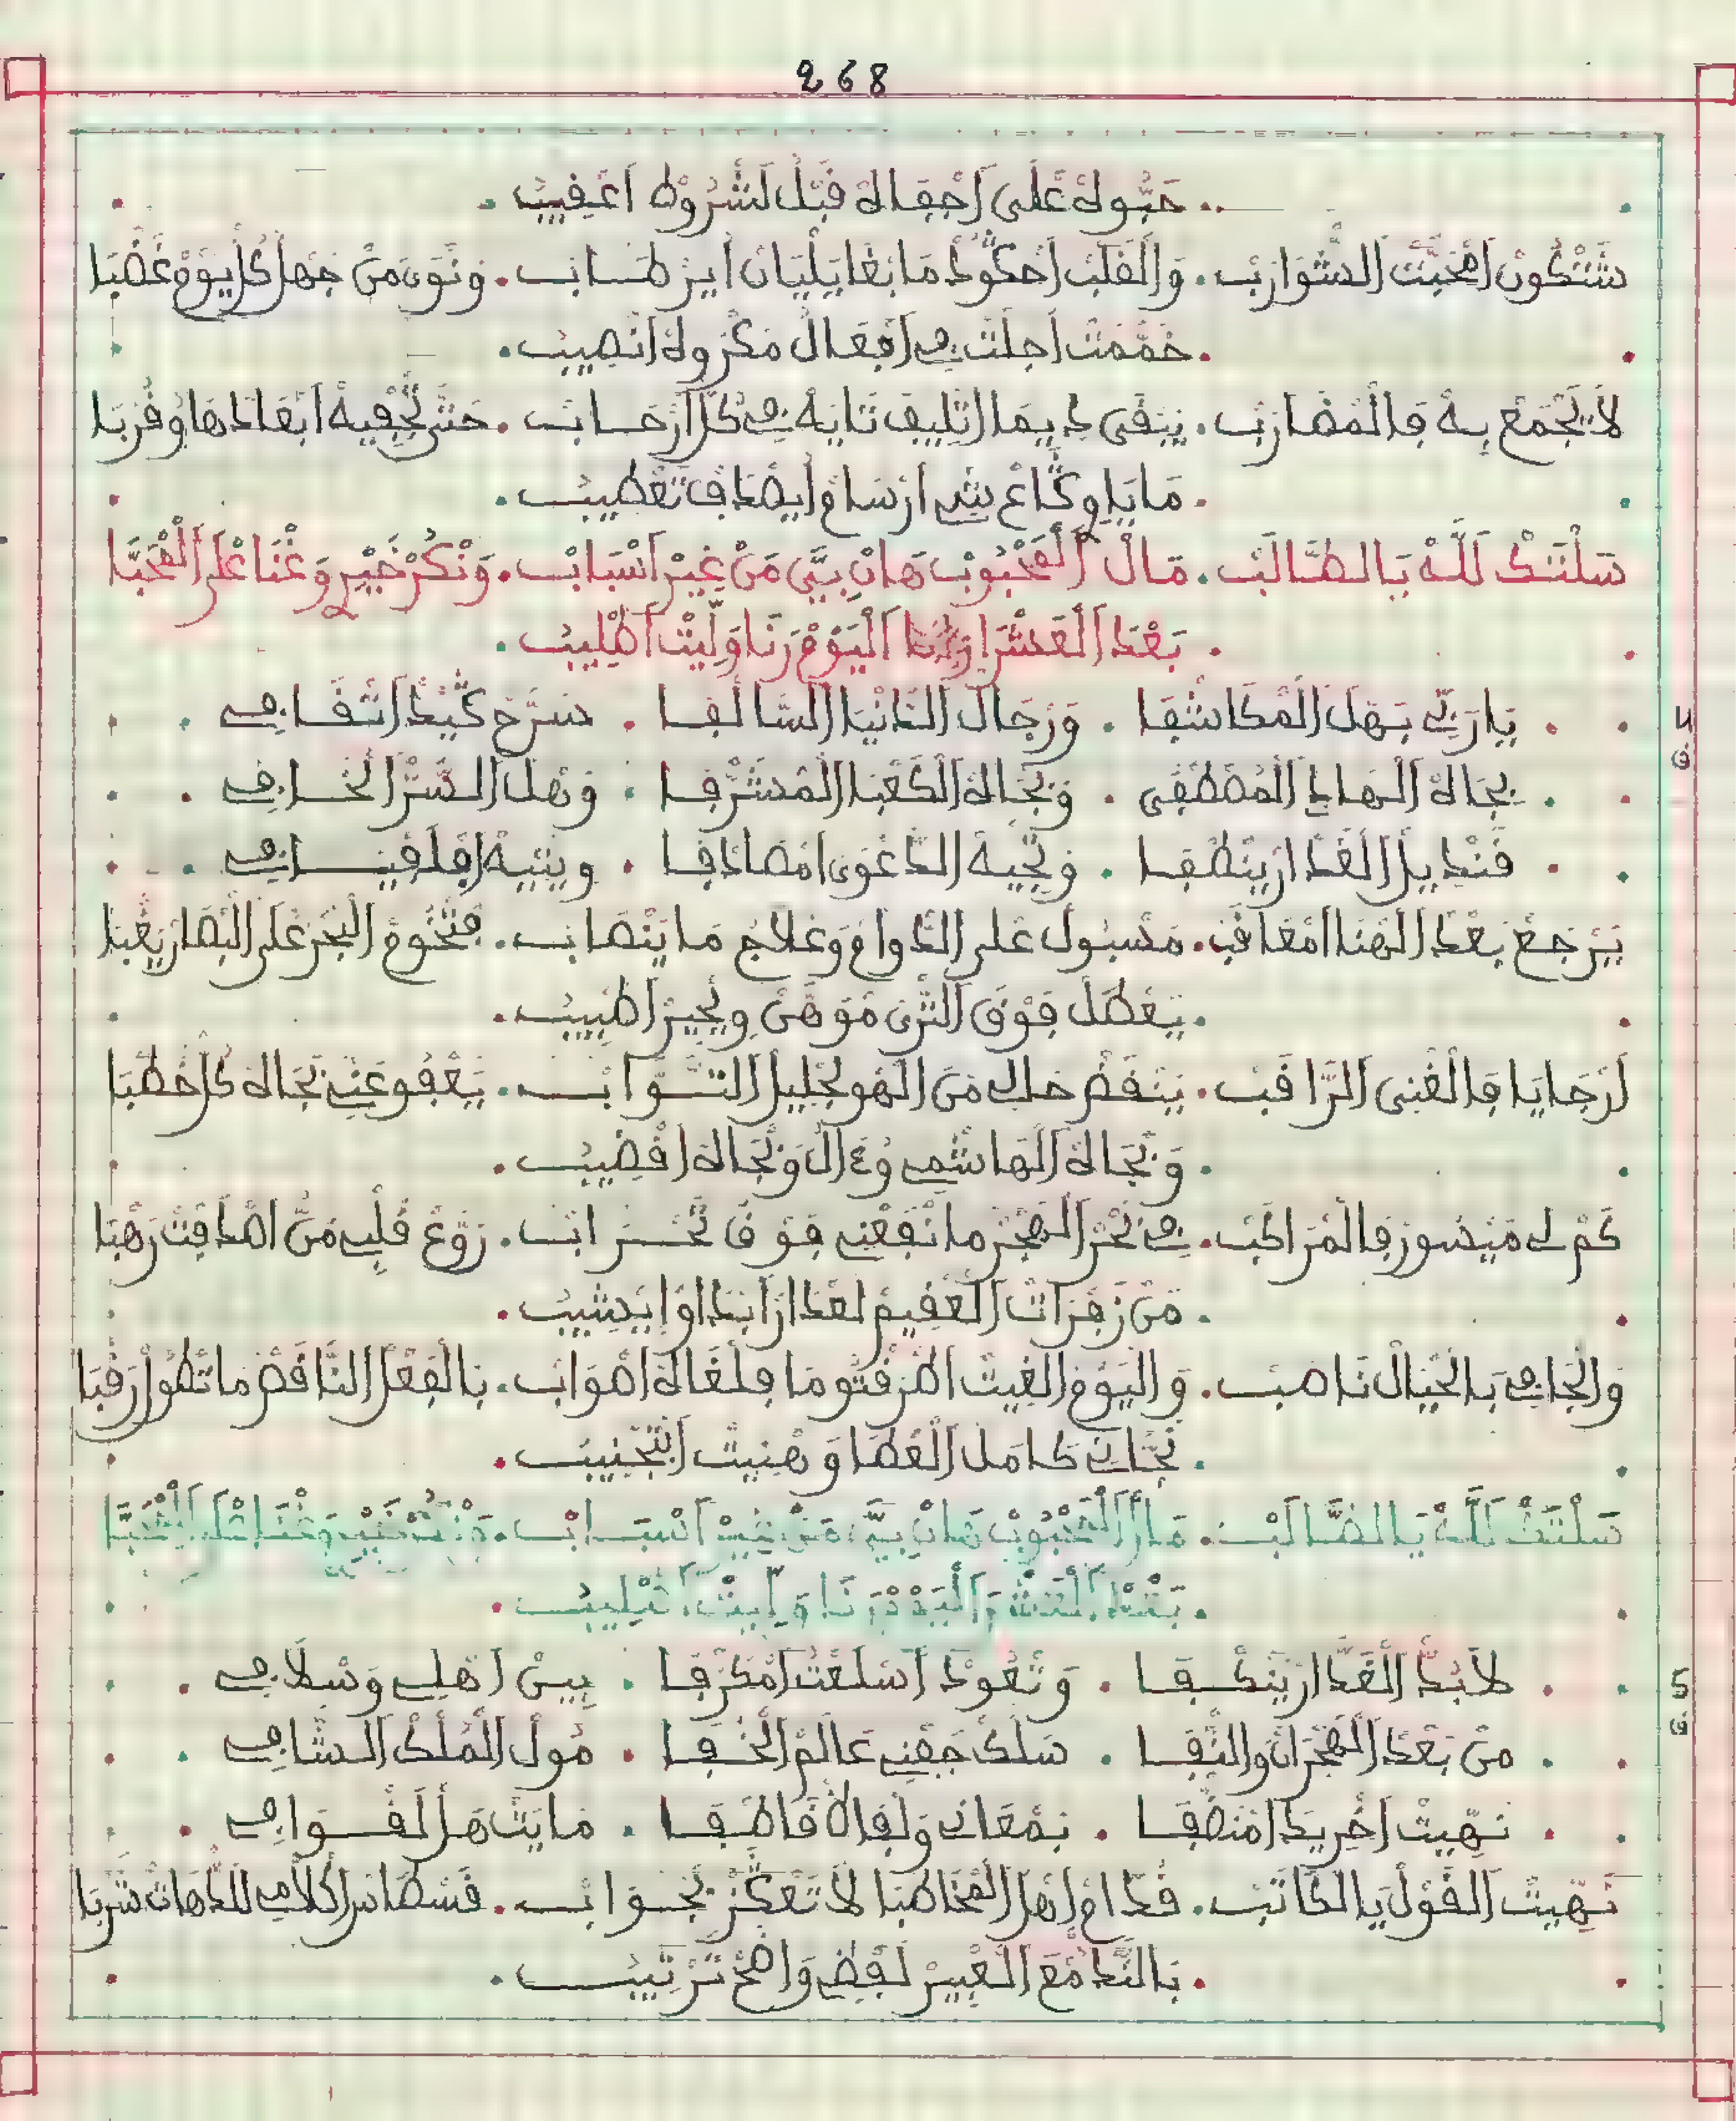 268
حبوك على اجفاك قبل لشروط اعقيب
شتكون امحبت الشوارب . والقلب احكود ما بغا يليان ايز طاب . ونون من جهل كل يوم غضبا
خممت اجلت في افعال مكروك انصيب
لا يجمع به فالمضارب . يبقى ديما اتليف تايه في كل ارحاب . حتى يجفيه ابعادها وقربا
ما يداوي كاع شي ارسام ايصادف تعطيب
سلتك لله يا الطالب . مال المحبوب هان بيي من غير اسباب . ونكر خير وغنا على المحبا
بعد العشرا اليوم رنا وليت اطليب
4
يا ربي بهل المكاشفا . ورجال الدنيا السالفا . سرح كيد اتقافي
ف
بجاه الهادي المصطفى . وبجاه الكعبا المشرفا . وهل السر الخافي
قنديل الغدار ينطفا . وتجيه الدعوى امصادفا . ويتيه افلفيافي
يرجع بعد الهنا امعاقب . مسبول على الدوام وعلاج ما ينصاب . مختوم البحر على البصار يغبا
يعطل فوق الثرى موهن ويحير اطبيب
لرجايا فالغنى الراقب . يتقض حالي من الهو لجليل التواب . يعفو عني بجاه كل خطبا
وبجاه الهاشمي وءال وبجاه اقضيب
كم لي ميسور فالمراكب . في بحر الهجر ما نفعني فوق تخراب . روع قلبي من اصدافت رهبا
من زهرات العقيم لغدار ابدا وايشيب
والجافي بالحبال ناصب . واليوم الغيت اطرقتو ما فلغاه اصواب . بالفعل الناقص ما تطول رقبا
نجاني كامل العطا وهنيت ابتجنيب
سلتك لله يا الطالب . مال المحبوب هان بيي من غير اسباب . ونكر خير وغنا على المحبا
بعد العشرا اليوم رنا وليت اطليب
5
لابد الغدار ينكفا . وتعود اسلعت امكرفا . بين اهلي وسلافي
ف
من بعد الهجران والثفا . سلك جفني عالم الخفا . مول الملك الشافي
نهيت اخريدا منطفا . بمعاني ولفاه قاطفا . ما يتاهل لقوافي
نهيت القول يا الكاتب . قدام اهل المخاطبا لا تعكر بجواب . قسطاس اكلامي للدهات شربا
بالند امع العبير لفضي واضح ترتيب